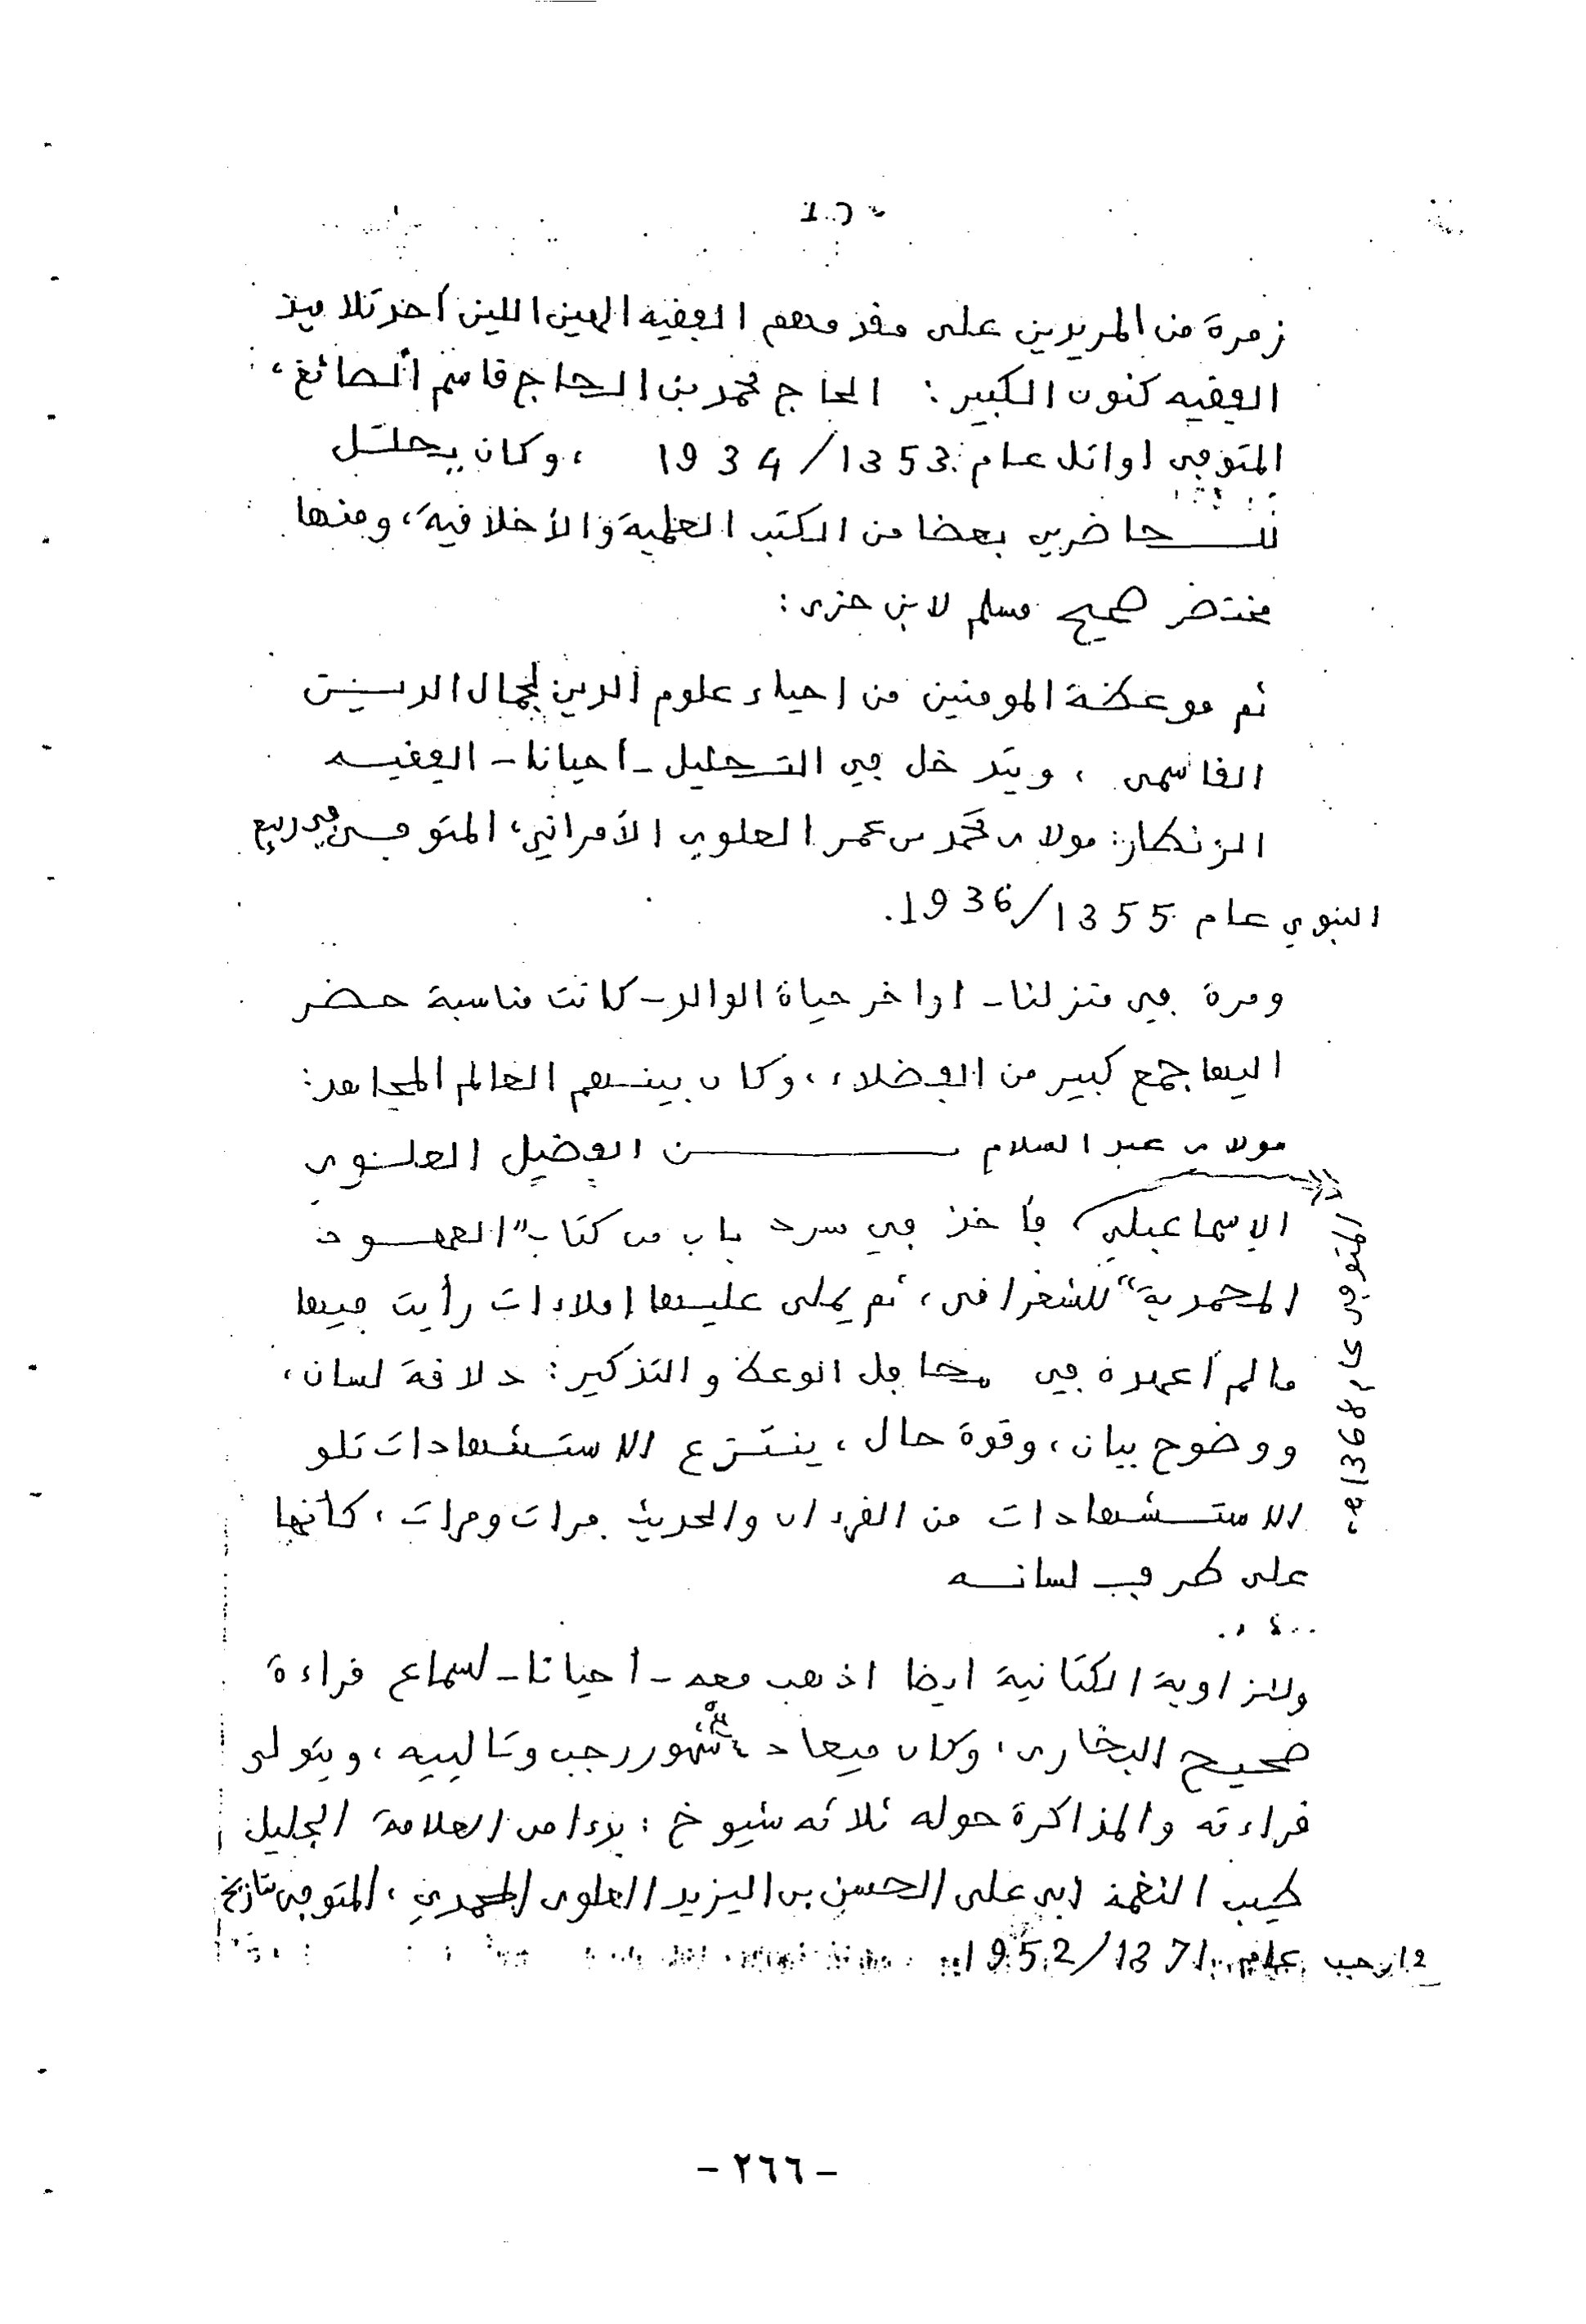 زمرة من المريدين على مقدمهم الفقيه الهين اللين أحد تلاميذ
الفقيه كنون الكبير: الحاج محمد بن الحاج قاسم الصائغ،
المتوفى اوائل عام 1353/1934، وكان يحلل
للحاضرين بعضا من الكتب العلمية والأخلاقية، ومنها
مختصر صحيح مسلم لابن حزى:
ثم موعظة المومنين من احياء علوم الدين لجمال الدين
القاسمى، ويتدخل في التحليل - أحيانا - الفقيه
الزنطار: مولاى محمد بن عمر العلوي الأمراني، المتوفى في ربيع
النبوي عام 1355/1936.
ومرة في منزلنا - اواخر حياة الوالد - كانت مناسبة حضر
اليها جمع كبير من الفضلاء، وكان بينهم العالم المجاهد:
مولاى عبد السلام بن الفضيل العلوي
الإسماعيلي، المتوفى عام 1368هـ،
فأخذ في سرد باب من كتاب "العهود
المحمدية" للشعرانى، ثم يملى عليها املاءات رأيت فيها
مالم أعهده في محافل الوعظ والتذكير: دلاقة لسان،
ووضوح بيان، وقوة حال، ينتزع الاستشهادات تلو
الاستشهادات من القرءان والحديث مرات ومرات، كأنها
على طرف لسانه
وللزاوية الكتانية ايضا اذهب معه - أحيانا - لسماع قراءة
صحيح البخارى، وكان ميعاده شهور رجب وتالييه، ويتولى
قراءته والمذاكرة حوله ثلاثه شيوخ: بدءا من العلامة الجليل
طيب النغمة ابى على الحسن بن اليزيد العلوى المحمدي، المتوفى بتاريخ
12 رجب عام 1371/1952
- ٢٦٦ -